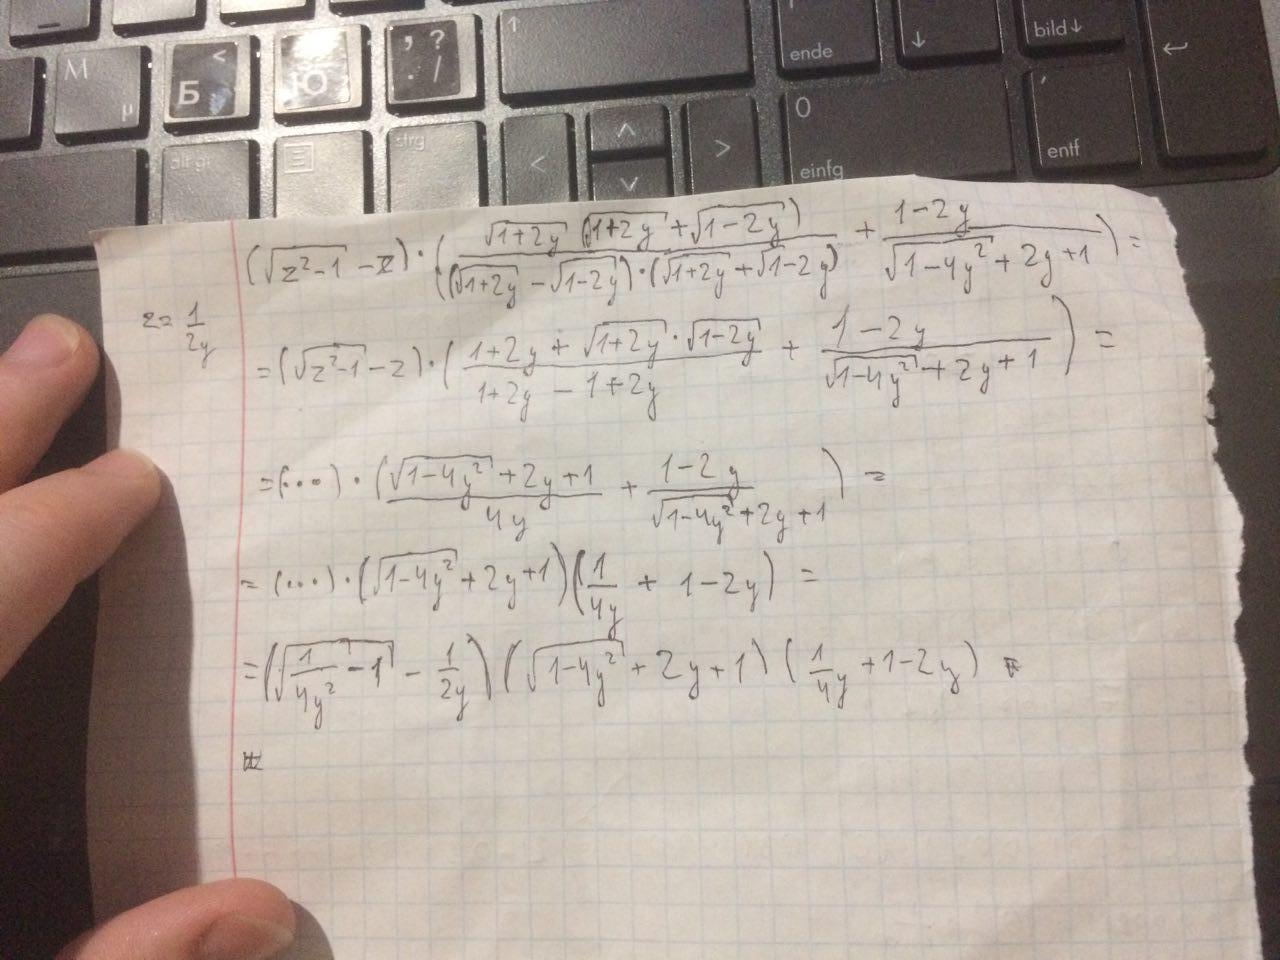 M µ < Б Ю , ? . / ↑ ende ↓ bild↓ ↵
alt gr strg < ^ v > 0 einfg , entf
(√(z²-1) - z) · ( √(1+2y) (√(1+2y) + √(1-2y)) / ((√(1+2y) - √(1-2y)) · (√(1+2y) + √(1-2y))) + (1-2y) / (√(1-4y²) + 2y + 1) ) =
z = 1/2y
= (√(z²-1) - z) · ( (1+2y + √(1+2y) · √(1-2y)) / (1+2y - 1+2y) + (1-2y) / (√(1-4y²) + 2y + 1) ) =
= (...) · ( (√(1-4y²) + 2y + 1) / 4y + (1-2y) / (√(1-4y²) + 2y + 1) ) =
= (...) · (√(1-4y²) + 2y + 1) (1/4y + 1-2y) =
= (√(1/4y² - 1) - 1/2y) (√(1-4y²) + 2y + 1) (1/4y + 1-2y) =